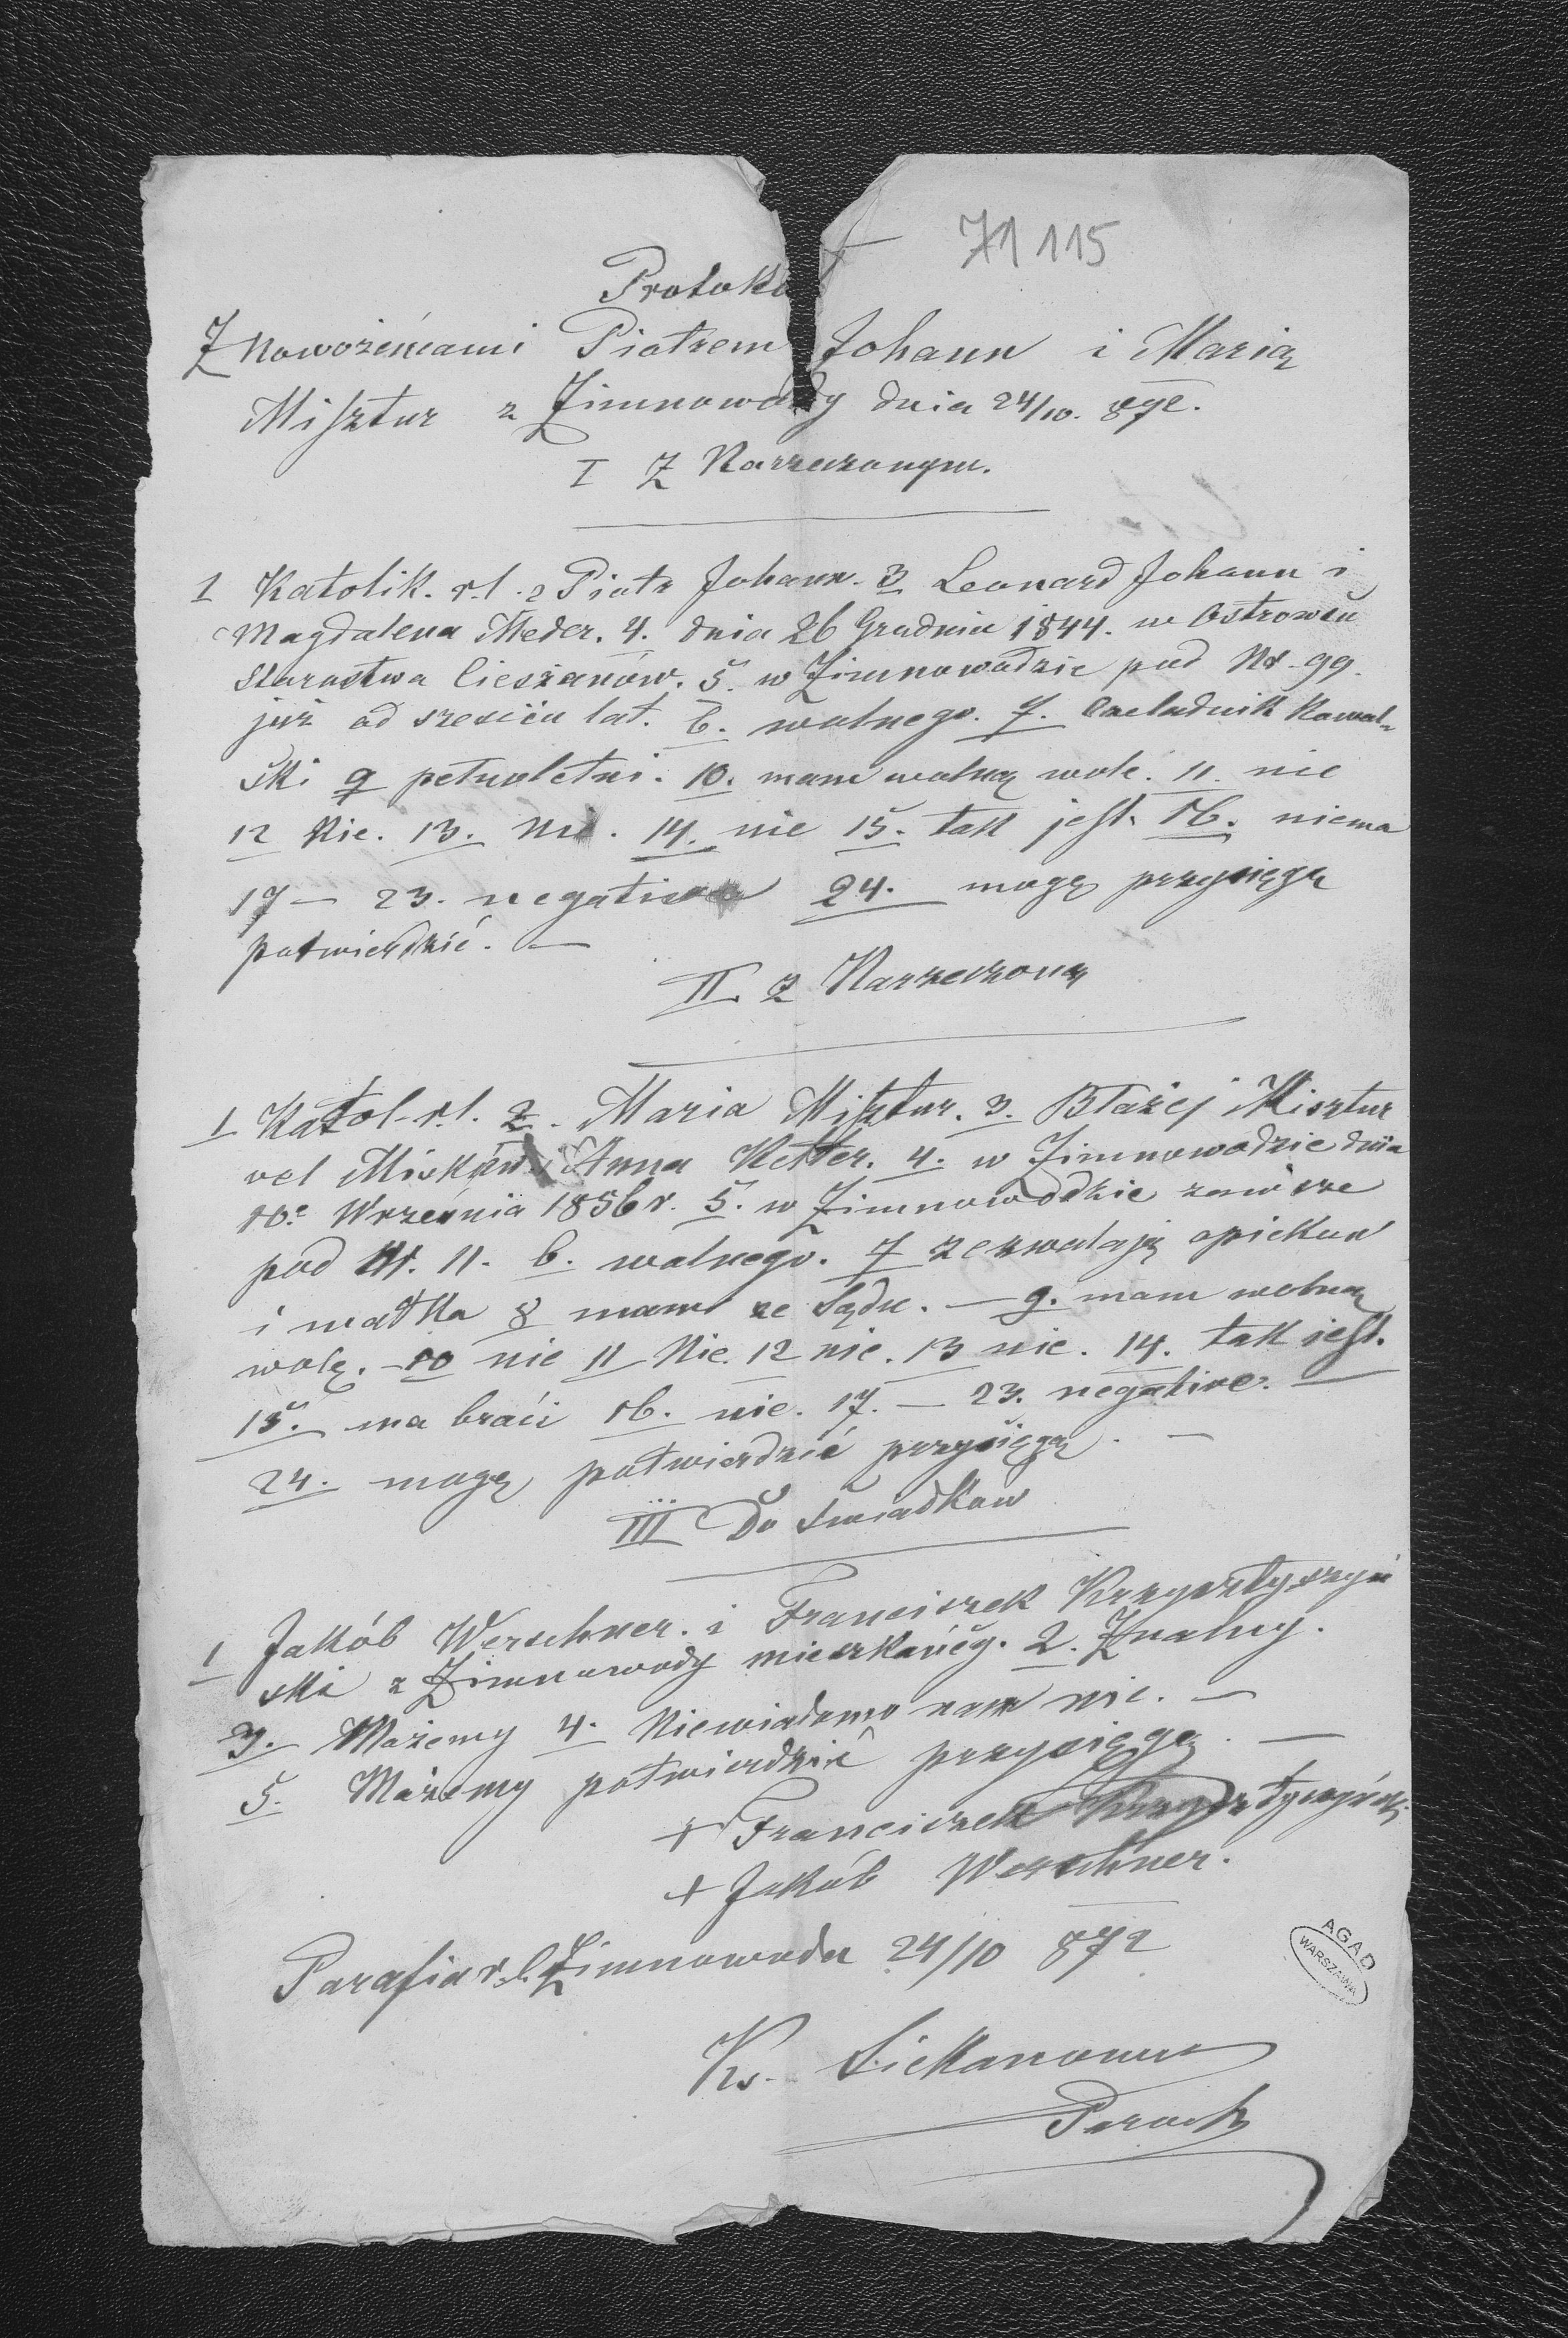 71 115
Protokół
Z Nowożeńcami Piotrem Johann i Marią
Misztur z Zimnowody dnia 24/10. 872.
I Z Narzeczonym.
1 Katolik. r.l. 2 Piotr Johann. 3 Leonard Johann i
Magdalena Meder. 4. dnia 26 Grudnia 1844. w Ostrowcu
Starostwa Cieszanów. 5. w Zimnowodzie pod Nr. 99.
już od sześciu lat. 6. wolnego. 7. Czeladnik Kowal-
ski 9 pełnoletni. 10. mam wolną wole. 11. nie
12 Nie. 13. Nie. 14. nie 15. tak jest. 16. niema
17 — 23. negative 24. mogę przysięgą
potwierdzić. —
II. Z Narzeczoną
1 Katol. r.l. 2. Maria Misztur. 3. Błażej Misztur
vel i Anna Ketter. 4. w Zimnowodzie dnia
10º Września 1856 r. 5. w Zimnowodzie zawsze
pod Nr. 11. 6. wolnego. 7 zezwalają opiekun
i matka 8 mam ze Sądu. — 9. mam wolną
wolę. — 10 nie 11 Nie. 12 nie. 13 nie. 14. tak jest.
15. ma braći 16. nie. 17. — 23. negative. —
24. mogę potwierdzić przysięgą. —
III Do Świadków
1 Jakób Werschner. i Franciszek Krzysztyszyń
ski z Zimnowody mieszkańcy. 2. Znalny.
3. Możemy 4. Niewiadomo nam nic. —
5. Możemy potwierdzić przysięgą. —
+ Franciszek Krzysztyszyński
+ Jakób Werschner.
Parafia r.l. Zimnowoda 24/10 872
Ks.
Paroch
AGAD
WARSZAWA